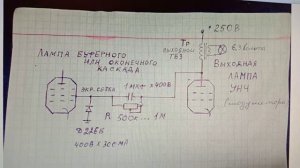 +250В
Тр
выходной
ТВЗ
6,3 вольта
Лампа буферного
или оконечного
каскада
Выходная
лампа
УНЧ
экр. сетка
1 мкф × 400В
R 500к...1М
Д226Б
400В × 300мА